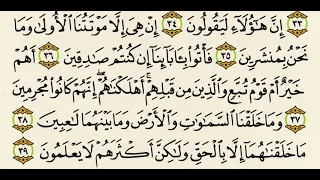 ٣٣ إِنَّ هَٰٓؤُلَآءِ لَيَقُولُونَ ٣٤ إِنْ هِىَ إِلَّا مَوْتَتُنَا ٱلْأُولَىٰ وَمَا
نَحْنُ بِمُنشَرِينَ ٣٥ فَأْتُوا۟ بِـَٔابَآئِنَآ إِن كُنتُمْ صَٰدِقِينَ ٣٦ أَهُمْ
خَيْرٌ أَمْ قَوْمُ تُبَّعٍ وَٱلَّذِينَ مِن قَبْلِهِمْ ۚ أَهْلَكْنَٰهُمْ ۖ إِنَّهُمْ كَانُوا۟ مُجْرِمِينَ
٣٧ وَمَا خَلَقْنَا ٱلسَّمَٰوَٰتِ وَٱلْأَرْضَ وَمَا بَيْنَهُمَا لَٰعِبِينَ ٣٨
مَا خَلَقْنَٰهُمَآ إِلَّا بِٱلْحَقِّ وَلَٰكِنَّ أَكْثَرَهُمْ لَا يَعْلَمُونَ ٣٩